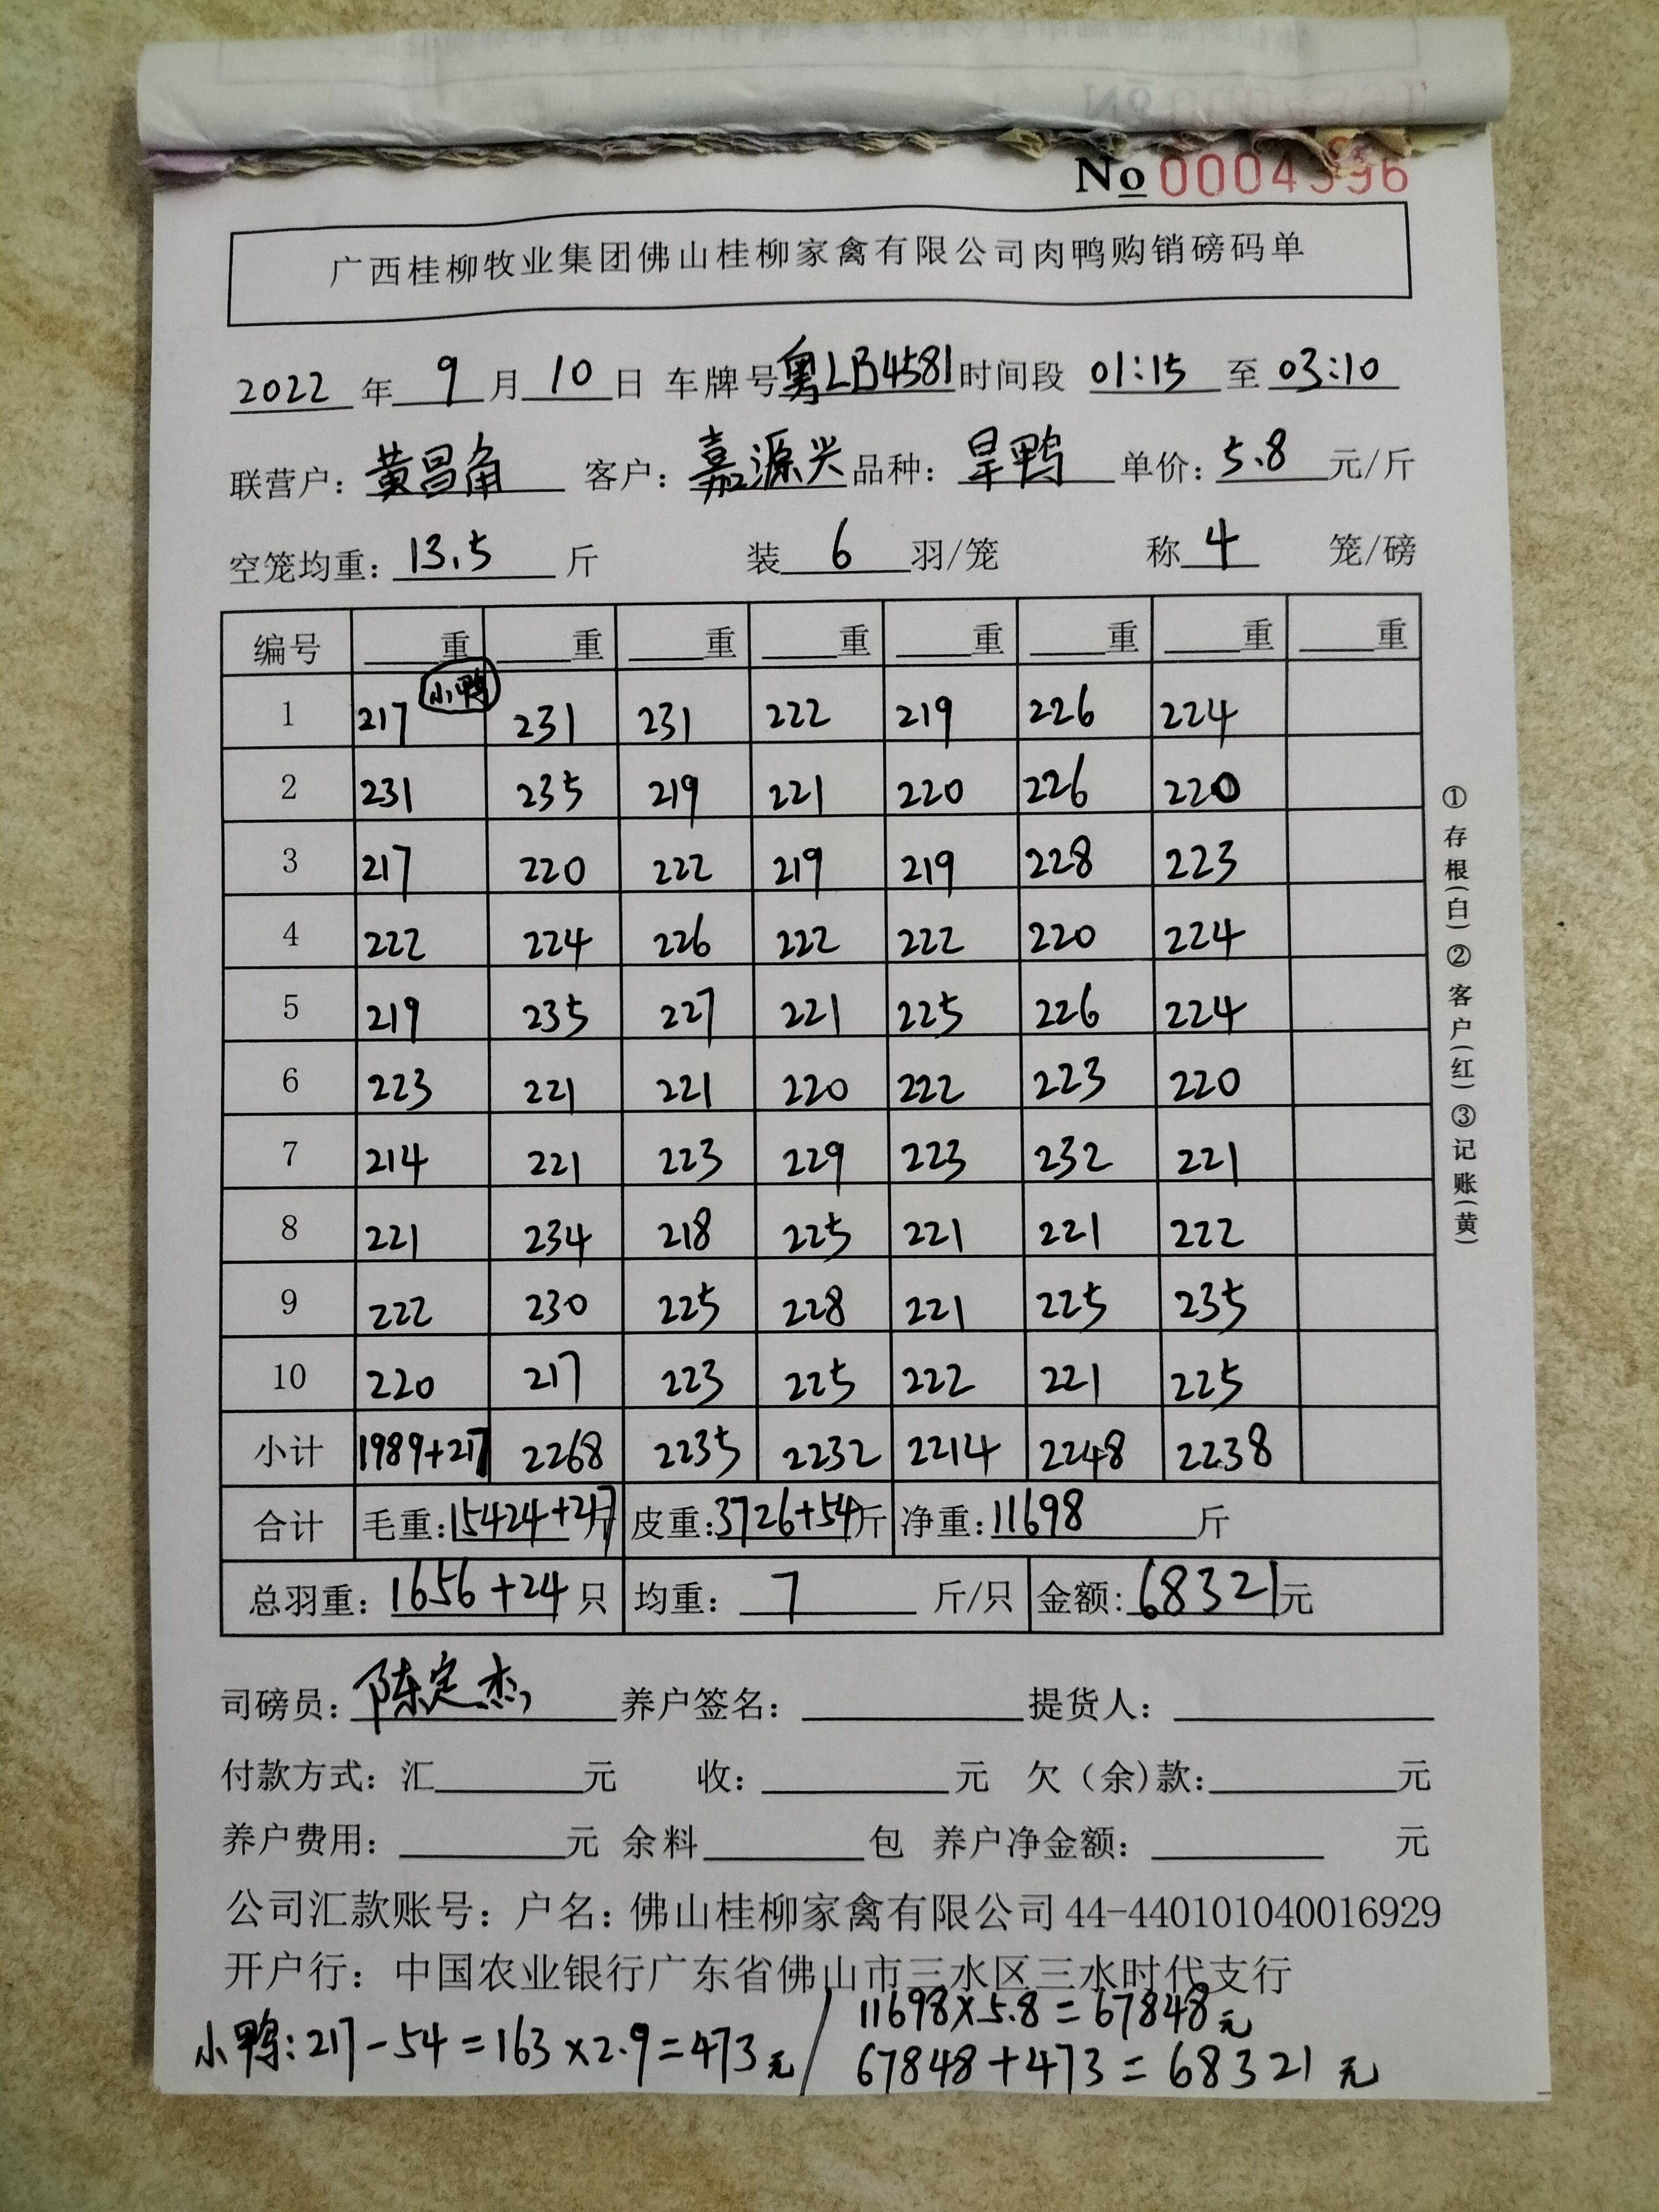 No 0004396
广西桂柳牧业集团佛山桂柳家禽有限公司肉鸭购销磅码单
2022 年 9 月 10 日 车牌号 粤LB4581 时间段 01:15 至 03:10
联营户: 黄昌角 客户: 嘉源兴 品种: 旱鸭 单价: 5.8 元/斤
空笼均重: 13.5 斤 装 6 羽/笼 称 4 笼/磅
编号 ___重 ___重 ___重 ___重 ___重 ___重 ___重 ___重
1 217 小鸭 231 231 222 219 226 224
2 231 235 219 221 220 226 220
3 217 220 222 219 219 228 223
4 222 224 226 222 222 220 224
5 219 235 227 221 225 226 224
6 223 221 221 220 222 223 220
7 214 221 223 229 223 232 221
8 221 234 218 225 221 221 222
9 222 230 225 228 221 225 235
10 220 217 223 225 222 221 225
小计 1989+217 2268 2235 2232 2214 2248 2238
合计 毛重: 15424+217 斤 皮重: 3726+54 斤 净重: 11698 斤
总羽重: 1656+24 只 均重: 7 斤/只 金额: 68321 元
①存根(白)②客户(红)③记账(黄)
司磅员: 陈定杰 养户签名: 提货人:
付款方式: 汇 元 收: 元 欠(余)款: 元
养户费用: 元 余料 包 养户净金额: 元
公司汇款账号: 户名: 佛山桂柳家禽有限公司 44-440101040016929
开户行: 中国农业银行广东省佛山市三水区三水时代支行
小鸭: 217-54=163×2.9=473元 / 11698×5.8=67848元
67848+473=68321元